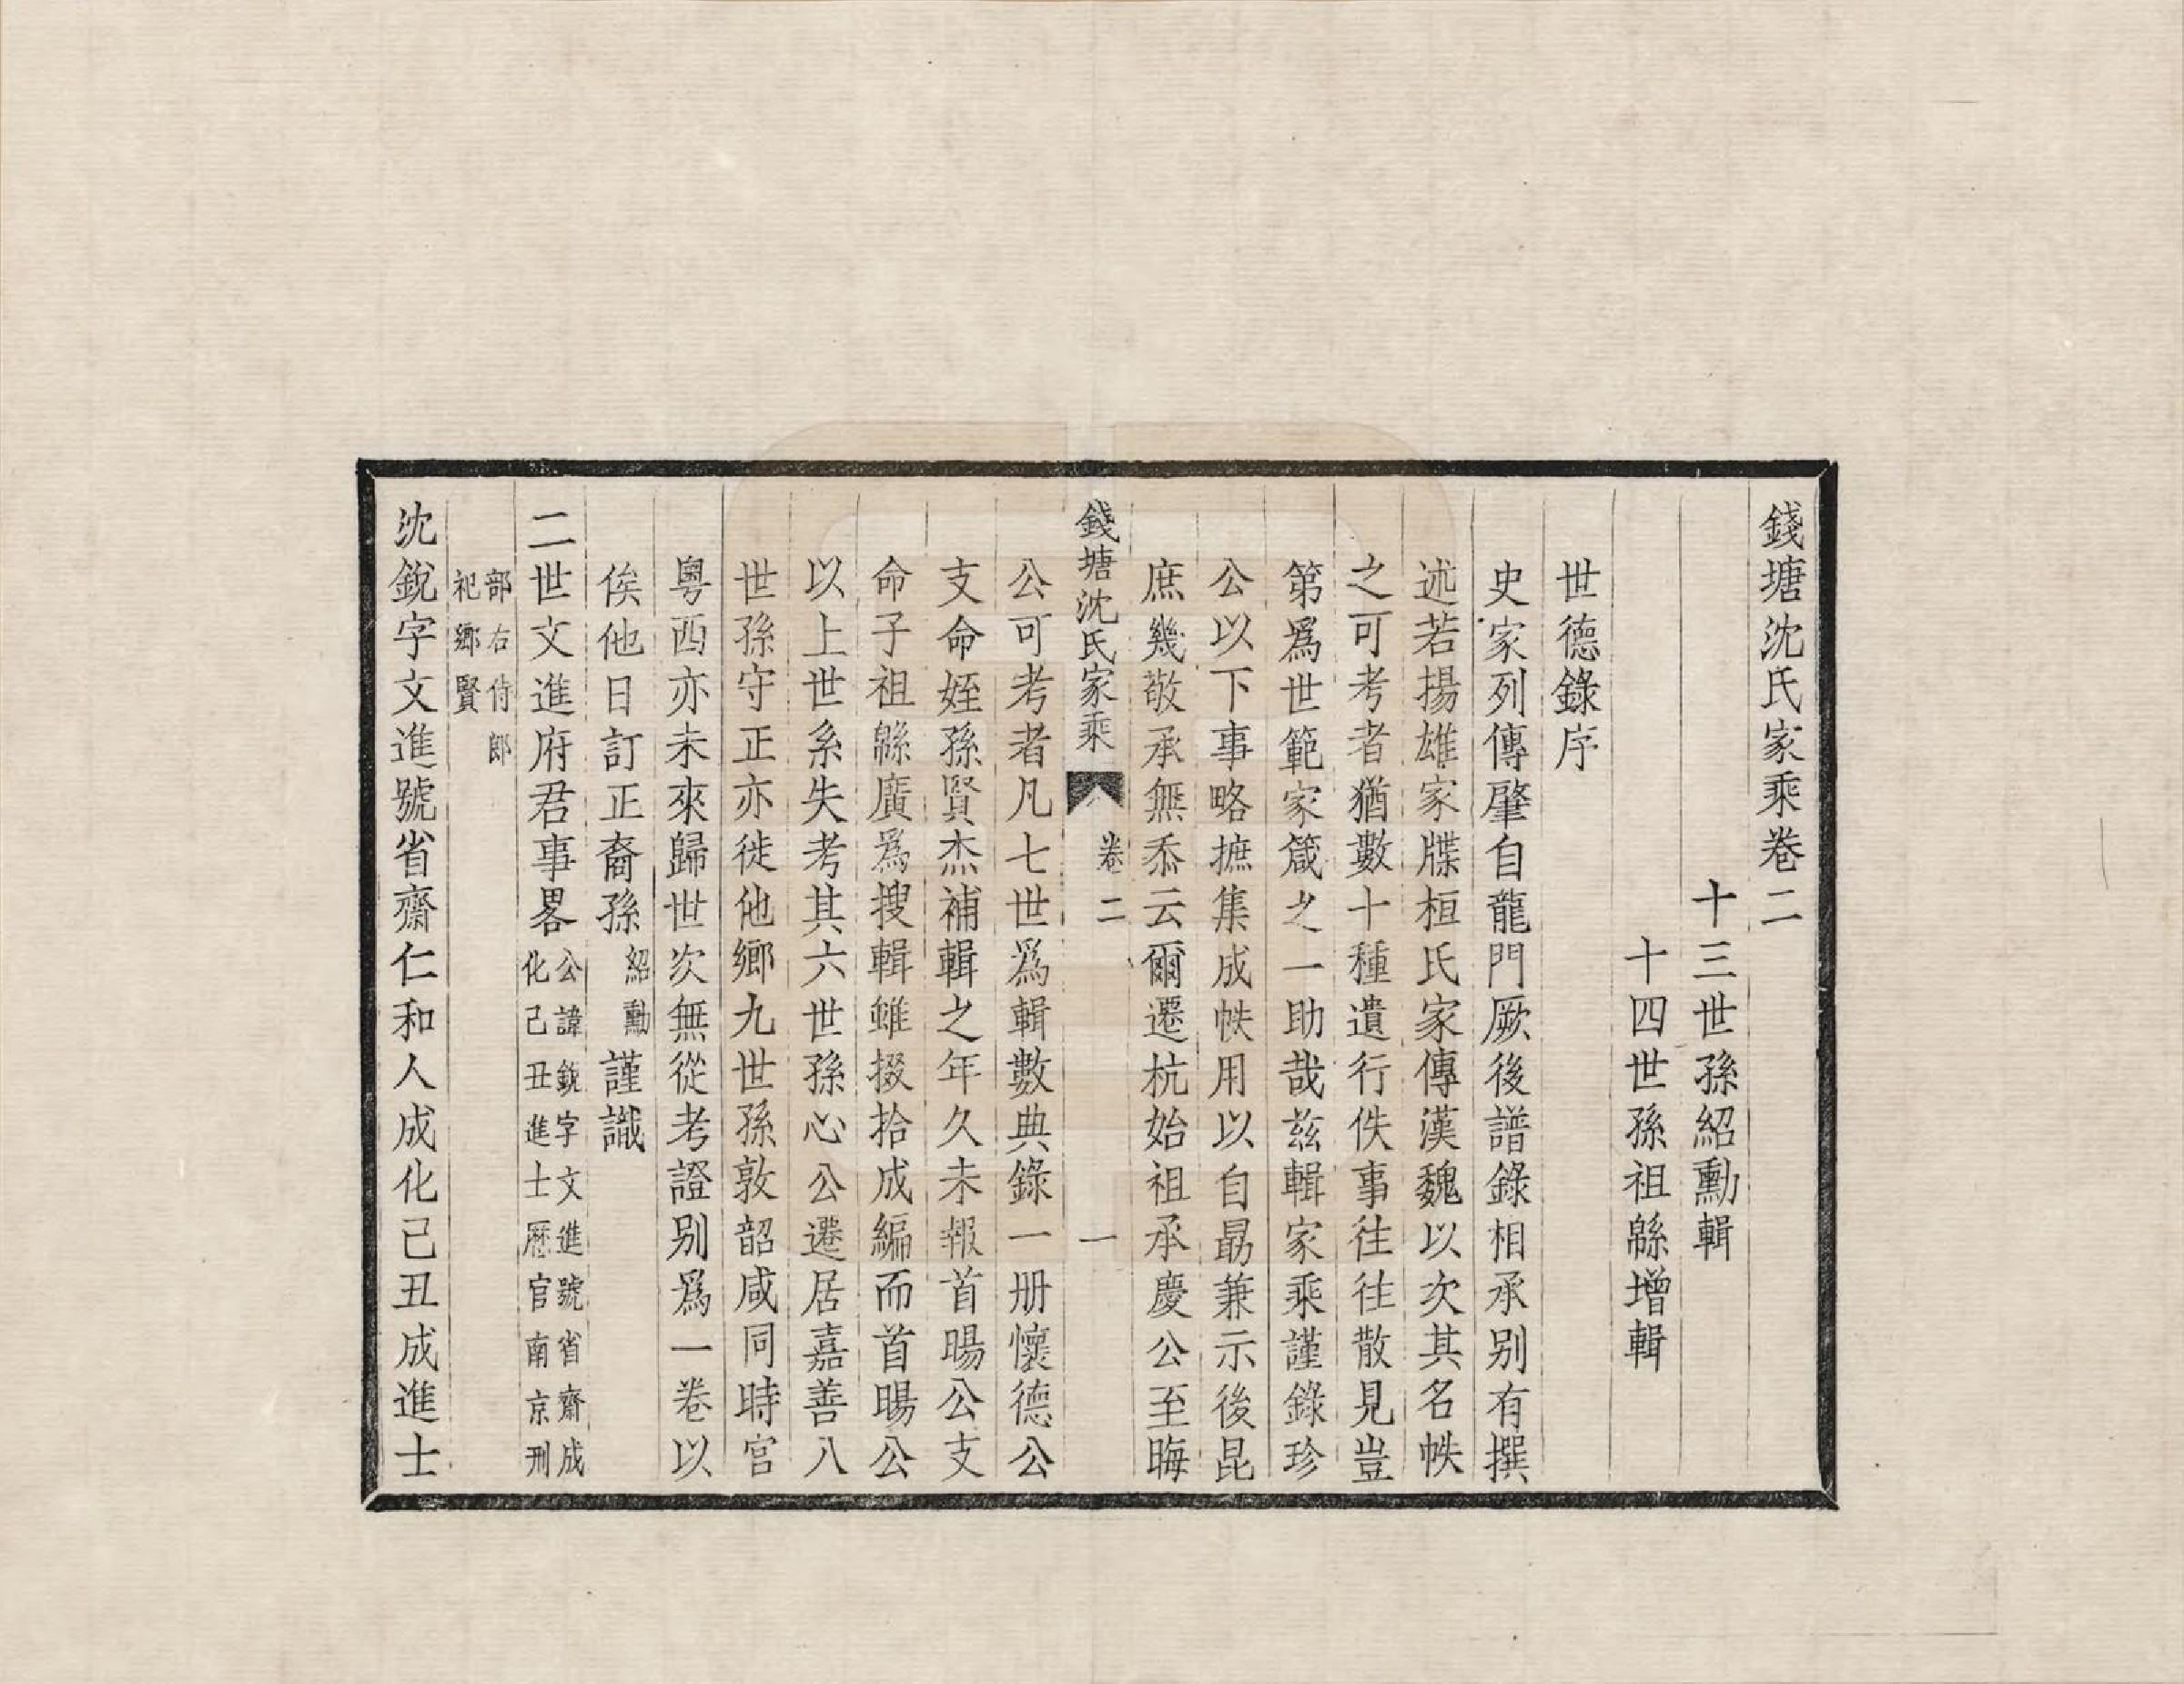 錢塘沈氏家乘卷二
十三世孫紹勳輯
十四世孫祖緜增輯
世德錄序
史家列傳肇自龍門厥後譜錄相承别有撰
述若揚雄家牒桓氏家傳漢魏以次其名帙
之可考者猶數十種遺行佚事往往散見豈
第爲世範家箴之一助哉兹輯家乘謹錄珍
公以下事略摭集成帙用以自勗兼示後昆
庶幾敬承無忝云爾遷杭始祖承慶公至晦
錢塘沈氏家乘 卷二 一
公可考者凡七世爲輯數典錄一册懷德公
支命姪孫賢杰補輯之年久未報首暘公支
命子祖緜廣爲搜輯雖掇拾成編而首暘公
以上世系失考其六世孫心公遷居嘉善八
世孫守正亦徙他鄉九世孫敦韶咸同時宦
粤西亦未來歸世次無從考證别爲一卷以
俟他日訂正裔孫紹勳謹識
二世文進府君事畧公諱銳字文進號省齋成
化己丑進士歷官南京刑
部右侍郎
祀鄉賢
沈銳字文進號省齋仁和人成化己丑成進士